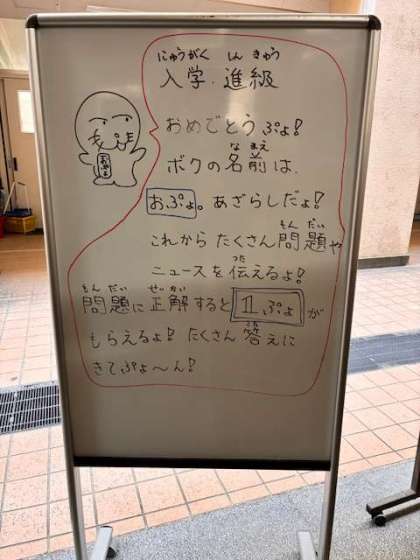 にゅうがく しん きゅう
入学.進級
おめでとう ぷょ!
な まえ
ボクの名前は、
おぷょ。あざらしだょ!
もん だい
これから たくさん問題や
つた
ニュースを伝えるょ!
もん だい せい かい
問題に正解すると 1ぷょ が
もらえるょ! たくさん 答えに
こた
きてぷょ〜ん!